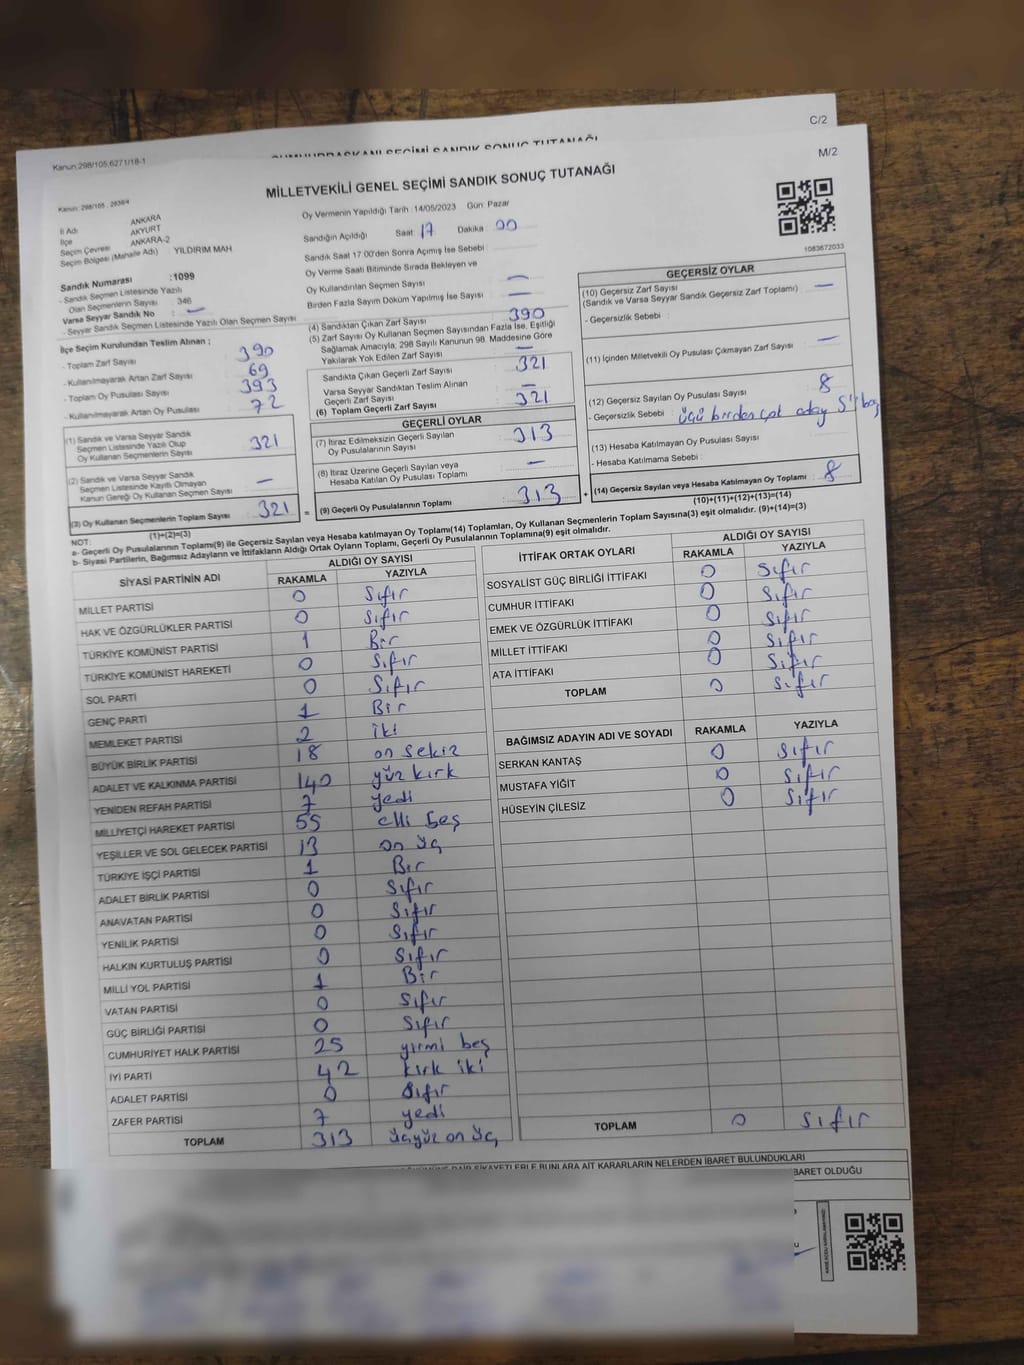 C/2
Kanun:298/105,6271/18-1
CUMHURBAŞKANI SEÇİMİ SANDIK SONUÇ TUTANAĞI
M/2
MİLLETVEKİLİ GENEL SEÇİMİ SANDIK SONUÇ TUTANAĞI
Kanun: 298/105, 2839/4
İl Adı ANKARA
İlçe AKYURT
Seçim Çevresi ANKARA-2
Seçim Bölgesi (Mahalle Adı) : YILDIRIM MAH
Sandık Numarası :1099
- Sandık Seçmen Listesinde Yazılı
Olan Seçmenlerin Sayısı : 346
Varsa Seyyar Sandık No : —
- Seyyar Sandık Seçmen Listesinde Yazılı Olan Seçmen Sayısı
Oy Vermenin Yapıldığı Tarih :14/05/2023 Gün: Pazar
Sandığın Açıldığı Saat 17 Dakika 00
Sandık Saat 17.00'den Sonra Açımış İse Sebebi :
Oy Verme Saati Bitiminde Sırada Bekleyen ve
Oy Kullandırılan Seçmen Sayısı —
Birden Fazla Sayım Döküm Yapılmış İse Sayısı —
1083672033
İlçe Seçim Kurulundan Teslim Alınan ;
- Toplam Zarf Sayısı 390
- Kullanılmayarak Artan Zarf Sayısı 69
- Toplam Oy Pusulası Sayısı 393
- Kullanılmayarak Artan Oy Pusulası 72
(1) Sandık ve Varsa Seyyar Sandık
Seçmen Listesinde Yazılı Olup
Oy Kullanan Seçmenlerin Sayısı 321
(2) Sandık ve Varsa Seyyar Sandık
Seçmen Listesinde Kayıtlı Olmayan
Kanun Gereği Oy Kullanan Seçmen Sayısı —
(3) Oy Kullanan Seçmenlerin Toplam Sayısı : 321 =
(1)+(2)=(3)
(4) Sandıktan Çıkan Zarf Sayısı 390
(5) Zarf Sayısı Oy Kullanan Seçmen Sayısından Fazla İse, Eşitliği
Sağlamak Amacıyla, 298 Sayılı Kanunun 98. Maddesine Göre
Yakılarak Yok Edilen Zarf Sayısı —
Sandıkta Çıkan Geçerli Zarf Sayısı 321
Varsa Seyyar Sandıktan Teslim Alınan
Geçerli Zarf Sayısı —
(6) Toplam Geçerli Zarf Sayısı 321
GEÇERLİ OYLAR
(7) İtiraz Edilmeksizin Geçerli Sayılan
Oy Pusulalarının Sayısı : 313
(8) İtiraz Üzerine Geçerli Sayılan veya
Hesaba Katılan Oy Pusulası Toplamı —
(9) Geçerli Oy Pusulalarının Toplamı : 313 +
GEÇERSİZ OYLAR
(10) Geçersiz Zarf Sayısı
(Sandık ve Varsa Seyyar Sandık Geçersiz Zarf Toplamı) : —
- Geçersizlik Sebebi :
(11) İçinden Milletvekili Oy Pusulası Çıkmayan Zarf Sayısı : —
(12) Geçersiz Sayılan Oy Pusulası Sayısı : 8
- Geçersizlik Sebebi : birden çok
(13) Hesaba Katılmayan Oy Pusulası Sayısı
- Hesaba Katılmama Sebebi :
(14) Geçersiz Sayılan veya Hesaba Katılmayan Oy Toplamı : 8
(10)+(11)+(12)+(13)=(14)
NOT:
a- Geçerli Oy Pusulalarının Toplamı(9) ile Geçersiz Sayılan veya Hesaba katılmayan Oy Toplamı(14) Toplamları, Oy Kullanan Seçmenlerin Toplam Sayısına(3) eşit olmalıdır. (9)+(14)=(3)
b- Siyasi Partilerin, Bağımsız Adayların ve İttifakların Aldığı Ortak Oyların Toplamı, Geçerli Oy Pusulalarının Toplamına(9) eşit olmalıdır.
SİYASİ PARTİNİN ADI ALDIĞI OY SAYISI
RAKAMLA YAZIYLA
MİLLET PARTİSİ 0 Sıfır
HAK VE ÖZGÜRLÜKLER PARTİSİ 0 Sıfır
TÜRKİYE KOMÜNİST PARTİSİ 1 Bir
TÜRKİYE KOMÜNİST HAREKETİ 0 Sıfır
SOL PARTİ 0 Sıfır
GENÇ PARTİ 1 Bir
MEMLEKET PARTİSİ 2 iki
BÜYÜK BİRLİK PARTİSİ 18 on sekiz
ADALET VE KALKINMA PARTİSİ 140 yüz kırk
YENİDEN REFAH PARTİSİ 7 yedi
MİLLİYETÇİ HAREKET PARTİSİ 55 elli beş
YEŞİLLER VE SOL GELECEK PARTİSİ 13 on üç
TÜRKİYE İŞÇİ PARTİSİ 1 Bir
ADALET BİRLİK PARTİSİ 0 Sıfır
ANAVATAN PARTİSİ 0 Sıfır
YENİLİK PARTİSİ 0 Sıfır
HALKIN KURTULUŞ PARTİSİ 0 Sıfır
MİLLİ YOL PARTİSİ 1 Bir
VATAN PARTİSİ 0 Sıfır
GÜÇ BİRLİĞİ PARTİSİ 0 Sıfır
CUMHURİYET HALK PARTİSİ 25 yirmi beş
İYİ PARTİ 42 kırk iki
ADALET PARTİSİ 0 Sıfır
ZAFER PARTİSİ 7 yedi
TOPLAM 313 üçyüz on üç
İTTİFAK ORTAK OYLARI ALDIĞI OY SAYISI
RAKAMLA YAZIYLA
SOSYALİST GÜÇ BİRLİĞİ İTTİFAKI 0 Sıfır
CUMHUR İTTİFAKI 0 Sıfır
EMEK VE ÖZGÜRLÜK İTTİFAKI 0 Sıfır
MİLLET İTTİFAKI 0 Sıfır
ATA İTTİFAKI 0 Sıfır
TOPLAM 0 Sıfır
BAĞIMSIZ ADAYIN ADI VE SOYADI RAKAMLA YAZIYLA
SERKAN KANTAŞ 0 Sıfır
MUSTAFA YİĞİT 0 Sıfır
HÜSEYİN ÇİLESİZ 0 Sıfır
TOPLAM 0 Sıfır
ŞİKAYETLERLE BUNLARA AİT KARARLARIN NELERDEN İBARET BULUNDUKLARI
BARET OLDUĞU